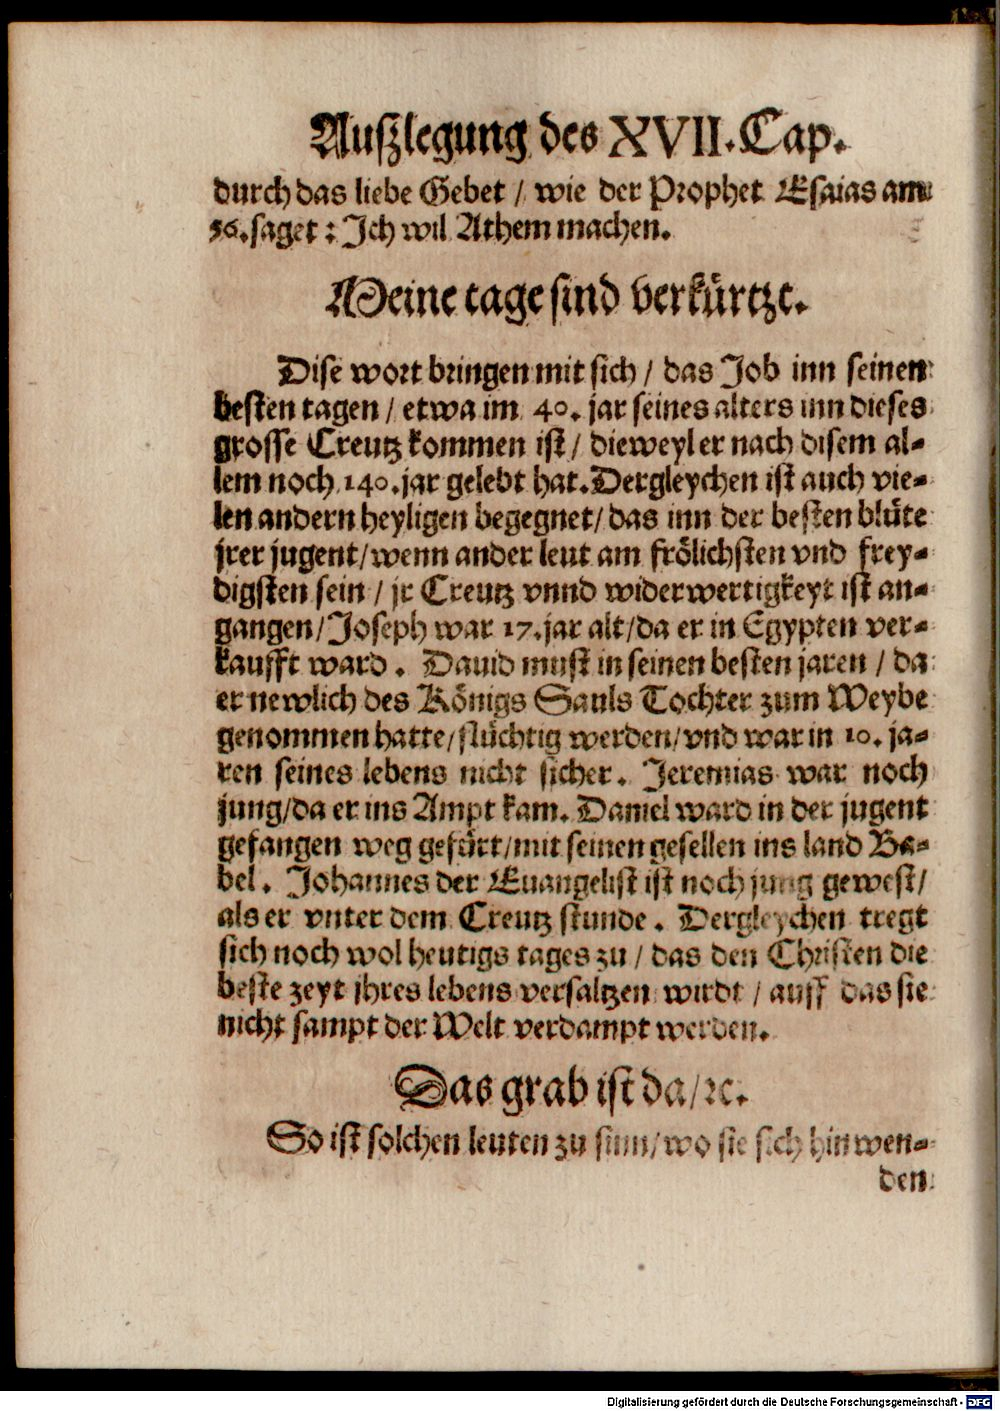 Auſzlegung des XVII. Cap.
durch das liebe Gebet / wie der Prophet Eſaias am
56. ſaget : Ich wil Athem machen.
Meine tage ſind verkürtzt.
Diſe wort bringen mit ſich / das Job inn ſeinen
beſten tagen / etwa im 40. jar ſeines alters inn dieſes
groſſe Creutz kommen iſt / dieweyl er nach diſem al-
lem noch 140. jar gelebt hat. Dergleychen iſt auch vie-
len andern heyligen begegnet / das inn der beſten blüte
jrer jugent / wenn ander leut am frölichſten vnd frey-
digſten ſein / jr Creutz vnnd widerwertigkeyt iſt an-
gangen / Joſeph war 17. jar alt / da er in Egypten ver-
kaufft ward . Dauid muſt in ſeinen beſten jaren / da
er newlich des Königs Sauls Tochter zum Weybe
genommen hatte / flüchtig werden / vnd war in 10. ja-
ren ſeines lebens nicht ſicher . Jeremias war noch
jung / da er ins Ampt kam. Daniel ward in der jugent
gefangen weg gefürt / mit ſeinen geſellen ins land Ba-
bel . Johannes der Euangeliſt iſt noch jung geweſt /
als er vnter dem Creutz ſtunde . Dergleychen tregt
ſich noch wol heutigs tages zu / das den Chriſten die
beſte zeyt jhres lebens verſaltzen wirdt / auff das ſie
nicht ſampt der Welt verdampt werden.
Das grab iſt da / ꝛc.
So iſt ſolchen leuten zu ſinn / wo ſie ſich hin wen-
den
Digitalisierung gefördert durch die Deutsche Forschungsgemeinschaft - DFG